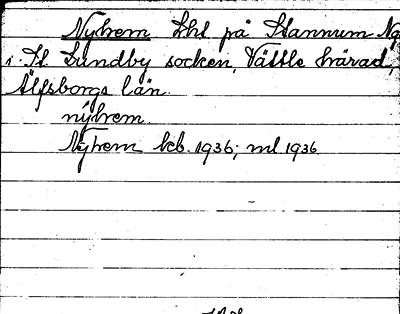 Nyhem. Lht på Stannum N9
i St. Lundby socken, Vättle härad,
Älfsborgs län.
nýhem.
Nyhem kcb. 1936; ml 1936